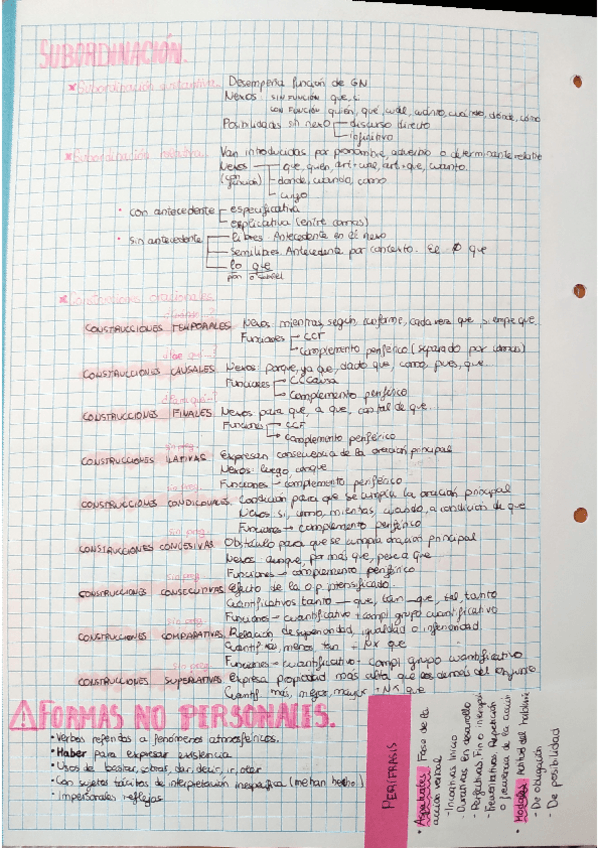 SUBORDINACIÓN.
Subordinación sustantiva. Desempeña función de GN
Nexos: SIN FUNCIÓN que, si
CON FUNCIÓN quién, qué, cuál, cuánto, cuándo, dónde, cómo
Posibilidades sin nexo discurso directo
infinitivo
Subordinación relativa. Van introducidas por pronombre, adverbio o determinante relativo
Nexos que, quien, art+cual, art+que, cuanto.
(con función) donde, cuando, como
cuyo
· con antecedente especificativa
explicativa (entre comas)
· sin antecedente libres. Antecedente en el nexo
Semilibres. Antecedente por contexto. El Ø que
lo que
Construcciones oracionales
CONSTRUCCIONES TEMPORALES. Nexos mientras, según, conforme, cada vez que, siempre que.
Funciones CCT
Complemento periférico (separado por comas)
CONSTRUCCIONES CAUSALES. Nexos porque, ya que, dado que, como, pues, que...
Funciones CCCausa
Complemento periférico
¿Para qué?
CONSTRUCCIONES FINALES. Nexos para que, a que, con tal de que...
Funciones CCF
Complemento periférico
sin preg.
CONSTRUCCIONES ILATIVAS Expresan consecuencia de la oración principal
Nexos: luego, conque
Funciones → complemento periférico
sin preg.
CONSTRUCCIONES CONDICIONALES. Condición para que se cumpla la oración principal
Nexos si, como, mientras, cuando, a condición de que
Funciones → complemento periférico
sin preg.
CONSTRUCCIONES CONCESIVAS Obstáculo para que se cumpla oración principal
Nexos aunque, por más que, pese a que
Funciones → complemento periférico
sin preg.
CONSTRUCCIONES CONSECUTIVAS Efecto de la o.p intensificado.
Cuantificativos tanto — que, tan — que, tal, tanto
Funciones → cuantificativo + compl grupo cuantificativo
sin preg.
CONSTRUCCIONES COMPARATIVAS. Relación de superioridad, igualdad o inferioridad.
Cuantif más, menos, tan + Nx que
Funciones → cuantificativo + compl grupo cuantificativo
sin preg.
CONSTRUCCIONES SUPERLATIVAS Expresa propiedad más alta que los demás del conjunto
Cuantif. más, mejor, mayor + Nx que
⚠FORMAS NO PERSONALES.
· Verbos referidos a fenómenos atmosféricos.
· Haber para expresar existencia
· Usos de bastar, sobrar, dar, decir, ir, oler
· Con sujetos tácitos de interpretación inespecífica (me han hecho)
· Impersonales reflejas
PERÍFRASIS
· Aspectuales Fase de la
acción verbal
- Incoativas Inicio
- Durativas En desarrollo
- Perfectivas Fin o interrupción
- Frecuentativas Repetición
o frecuencia de la acción
· Modales Actitud del hablante
- De obligación
- De posibilidad